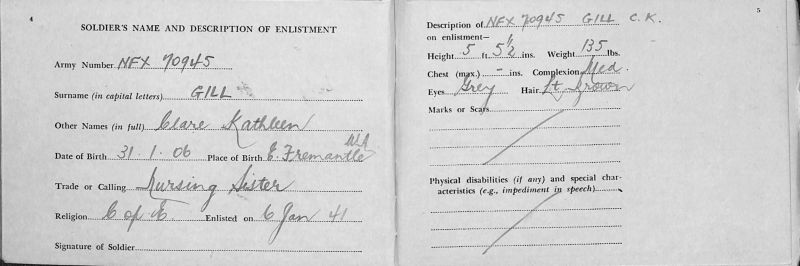 4
SOLDIER'S NAME AND DESCRIPTION OF ENLISTMENT
Army Number NFX 70945
Surname (in capital letters) GILL
Other Names (in full) Clare Kathleen
Date of Birth 31 1. 06 Place of Birth E. Fremantle WA
Trade or Calling Nursing Sister
Religion C of E. Enlisted on 6 Jan 41
Signature of Soldier
5
Description of NFX 70945 GILL C. K.
on enlistment—
Height 5 ft. 5½ ins. Weight 135 lbs.
Chest (max.) - ins. Complexion Med.
Eyes Grey Hair Lt. Brown
Marks or Scars
Physical disabilities (if any) and special char-
acteristics (e.g., impediment in speech)